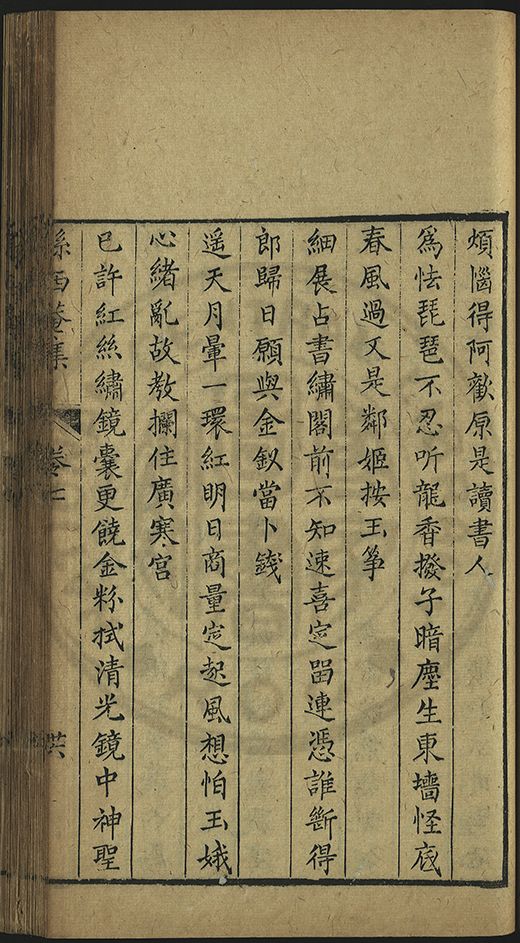 煩惱得阿歡原是讀書人
爲怯琵琶不忍听龍香撥子暗塵生東墻怪底
春風過又是鄰姬按玉筝
細展占書繡閣前不知速喜定畱連憑誰斷得
郎歸日願與金釵當卜錢
遥天月暈一環紅明日商量定起風想怕玉娥
心緒亂故教攔住廣寒宫
已許紅絲繡鏡囊更饒金粉拭清光鏡中神聖
孫西菴集
卷七